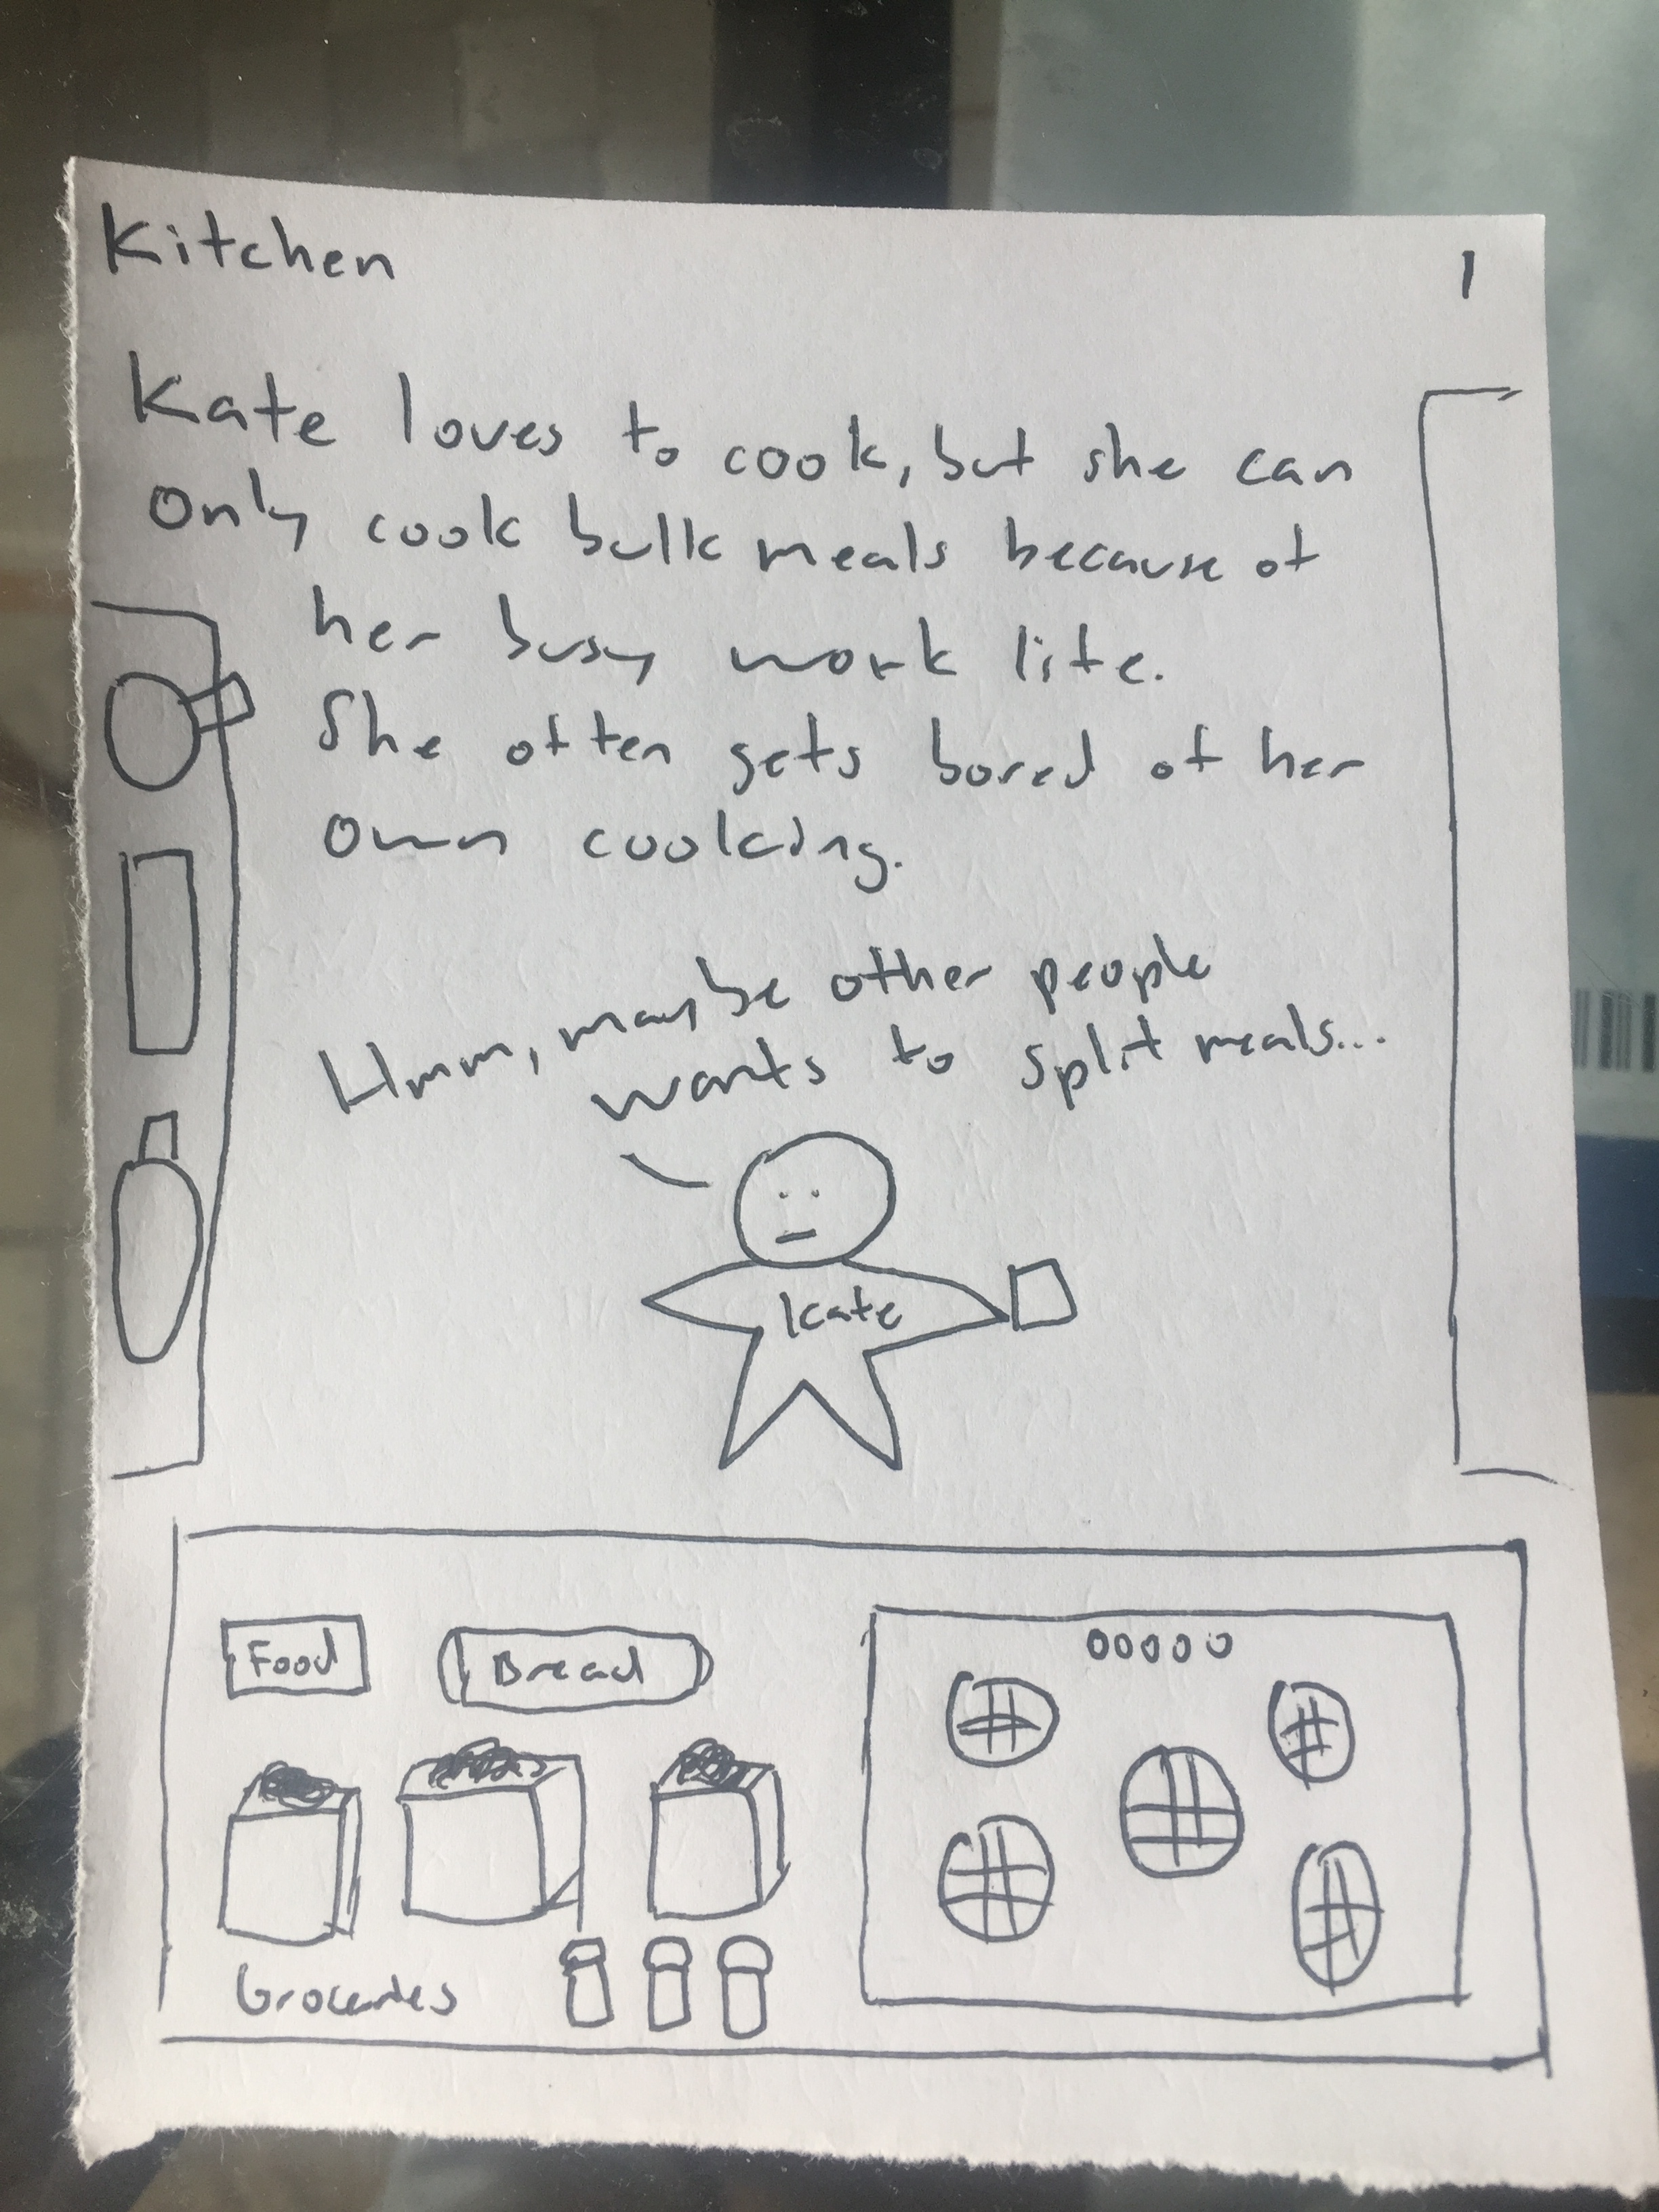 Kitchen
1
Kate loves to cook, but she can
only cook bulk meals because of
her busy work life.
She often gets bored of her
own cooking.
Hmm, maybe other people
wants to split meals...
Kate
Food
Bread
Groceries